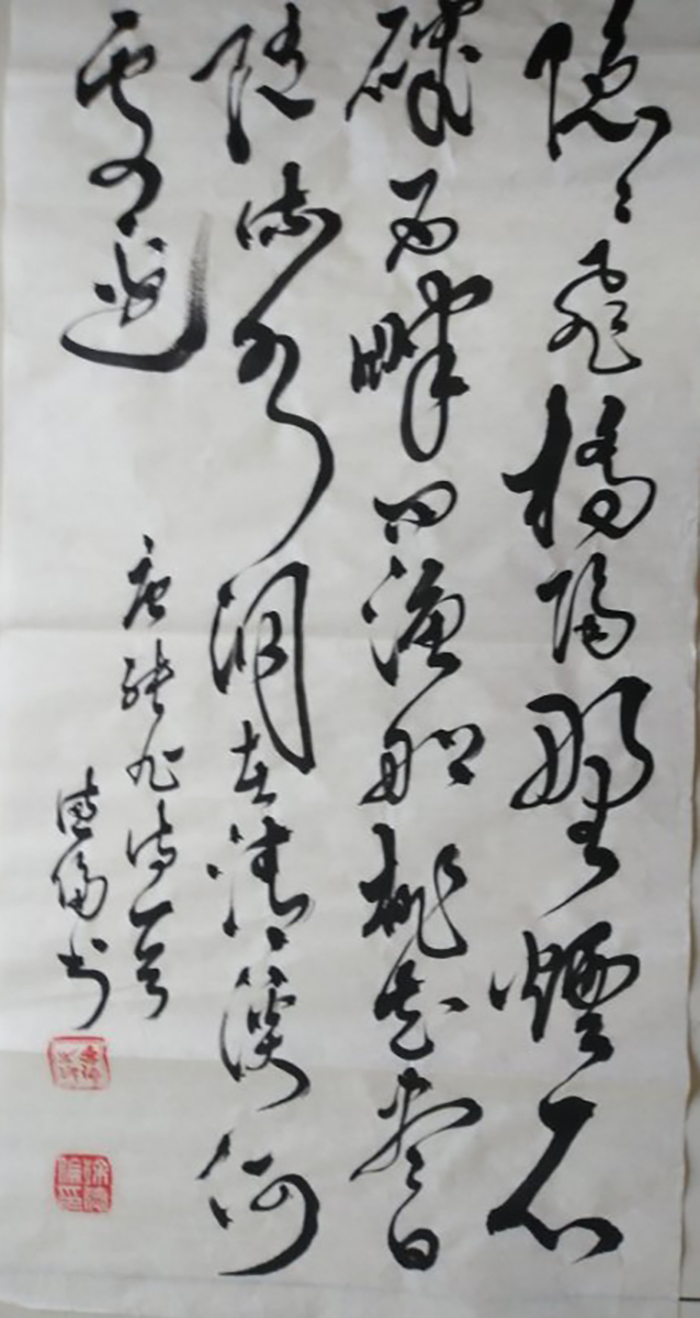 隐〻飞桥隔野烟石
矶西畔问渔船桃花尽日
随流水洞在清溪何
处边
唐张旭诗一首
德阳书